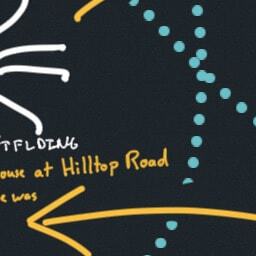 TFLDING
ouse at Hilltop Road
e was